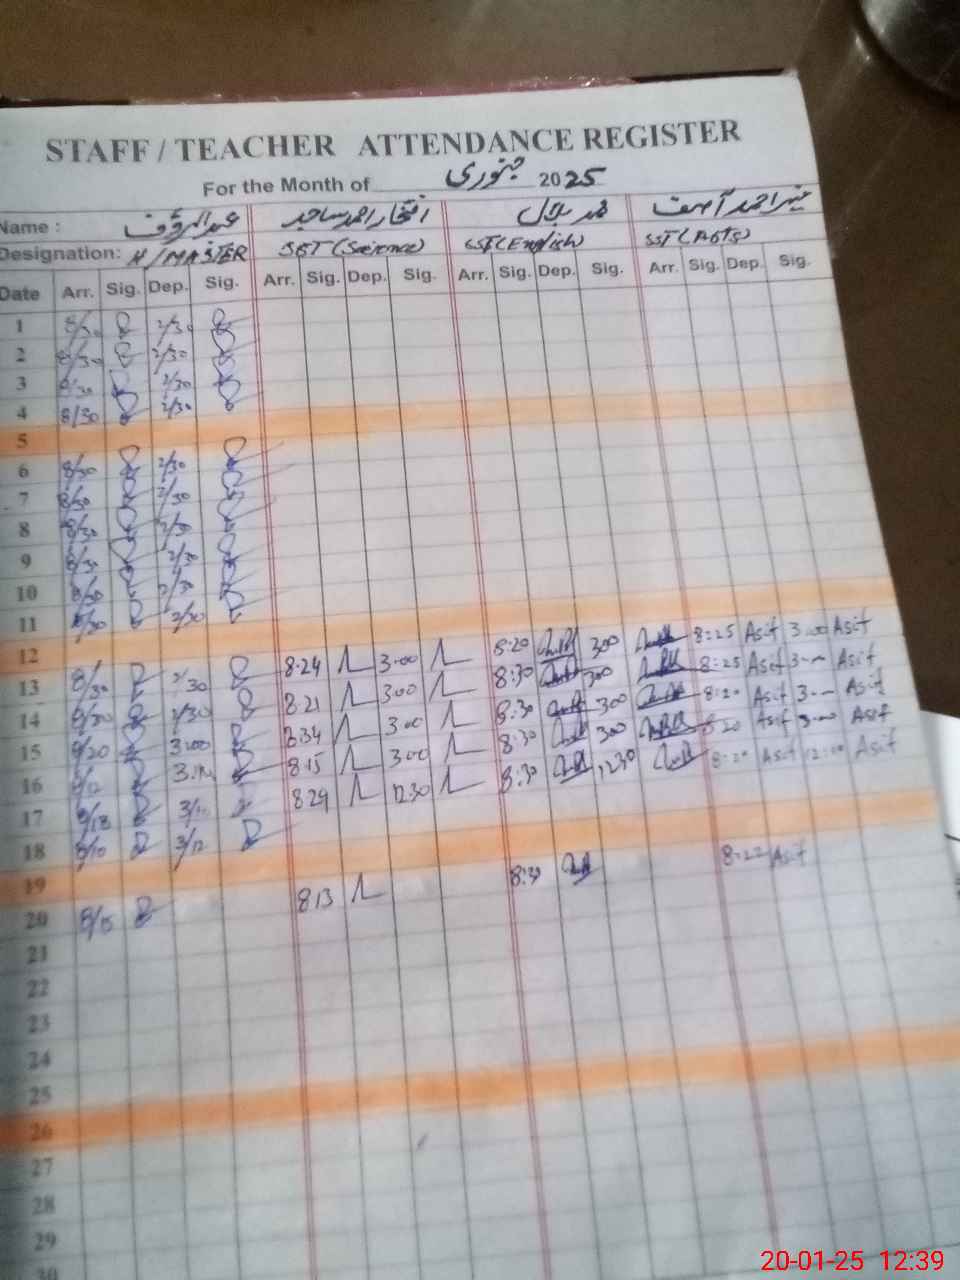 STAFF / TEACHER ATTENDANCE REGISTER
For the Month of جنوری 2025
Name : عبدالرؤف افتخار احمد ساجد محمد بلال منیر احمد آصف
Designation: H/MASTER SST (Science) SST (English) SST (Arts)
Date Arr. Sig. Dep. Sig. Arr. Sig. Dep. Sig. Arr. Sig. Dep. Sig. Arr. Sig. Dep. Sig.
1 8/30 2/30
2 8/30 2/30
3 8/30 2/30
4 8/30 2/30
5
6 8/30 2/30
7 8/30 2/30
8 8/30 2/30
9 8/30 2/30
10 8/30 2/30
11 8/30 2/30
12
13 8/30 2/30 8.24 3.00 8:20 300 8:25 Asif 3.00 Asif
14 8/30 2/30 8.21 300 8:30 300 8:25 Asif Asif
15 8/20 3.00 8.34 300 8:30 300 8:20 Asif Asif
16 8/12 8.15 300 8:30 300 8:20 Asif 3.00 Asif
17 8/18 829 1230 8:30 1230 8:20 Asif Asif
18 8/10 3/12
19
20 8/15 8.13 8:30 8:22 Asif
21
22
23
24
25
26
27
28
29
30
20-01-25 12:39